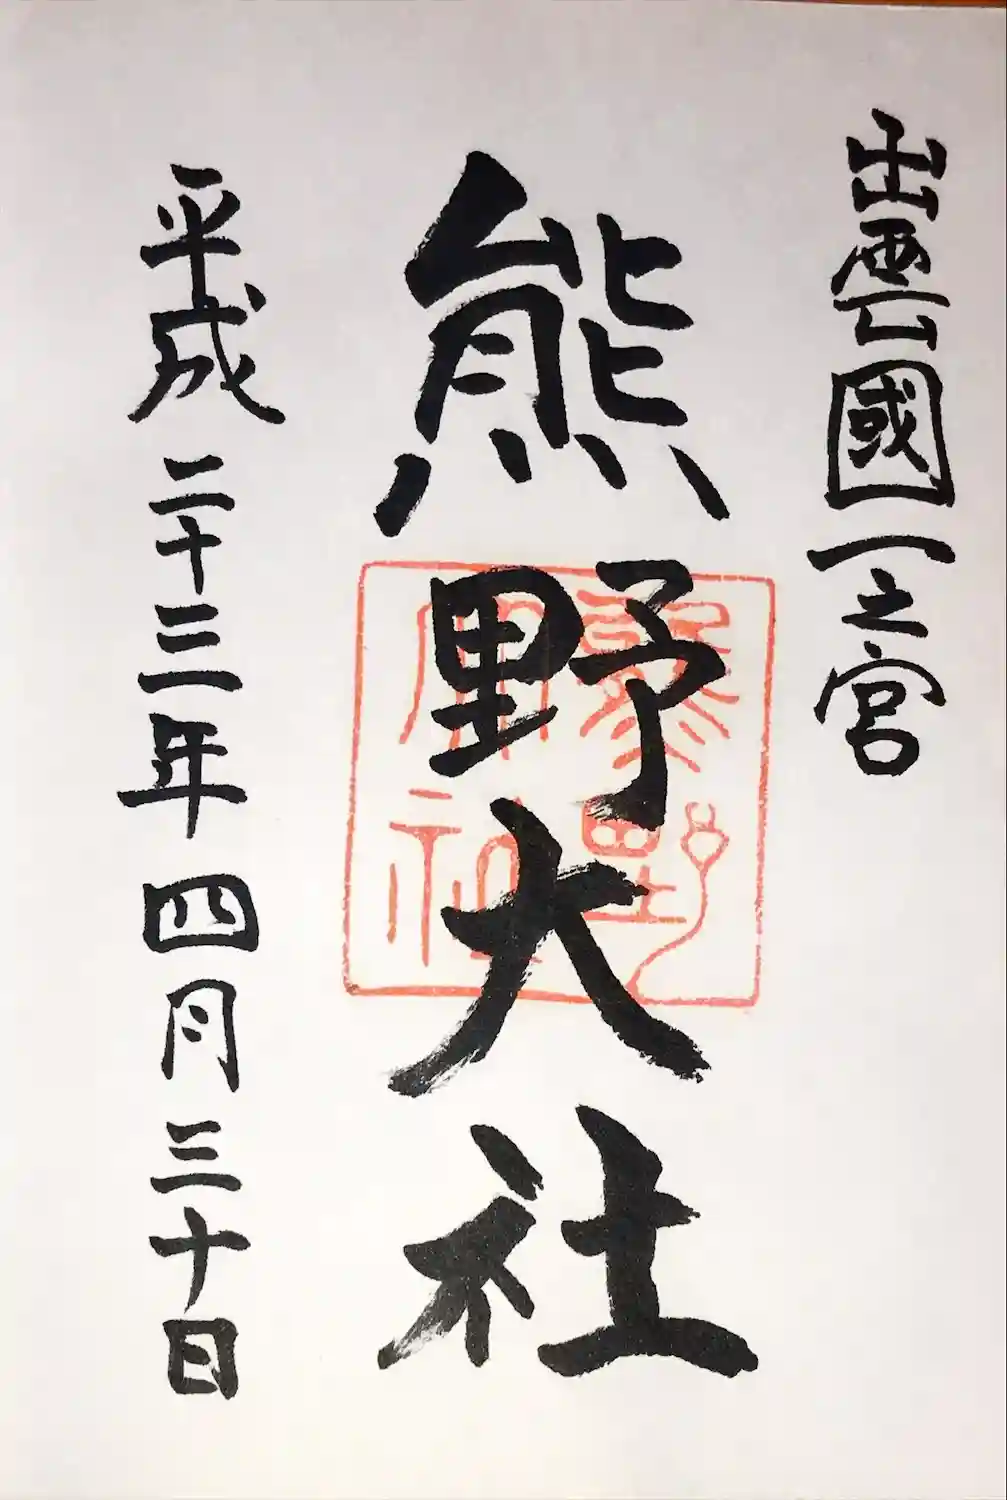 出雲國一之宮
熊野大社
平成二十三年四月三十日
熊野大社